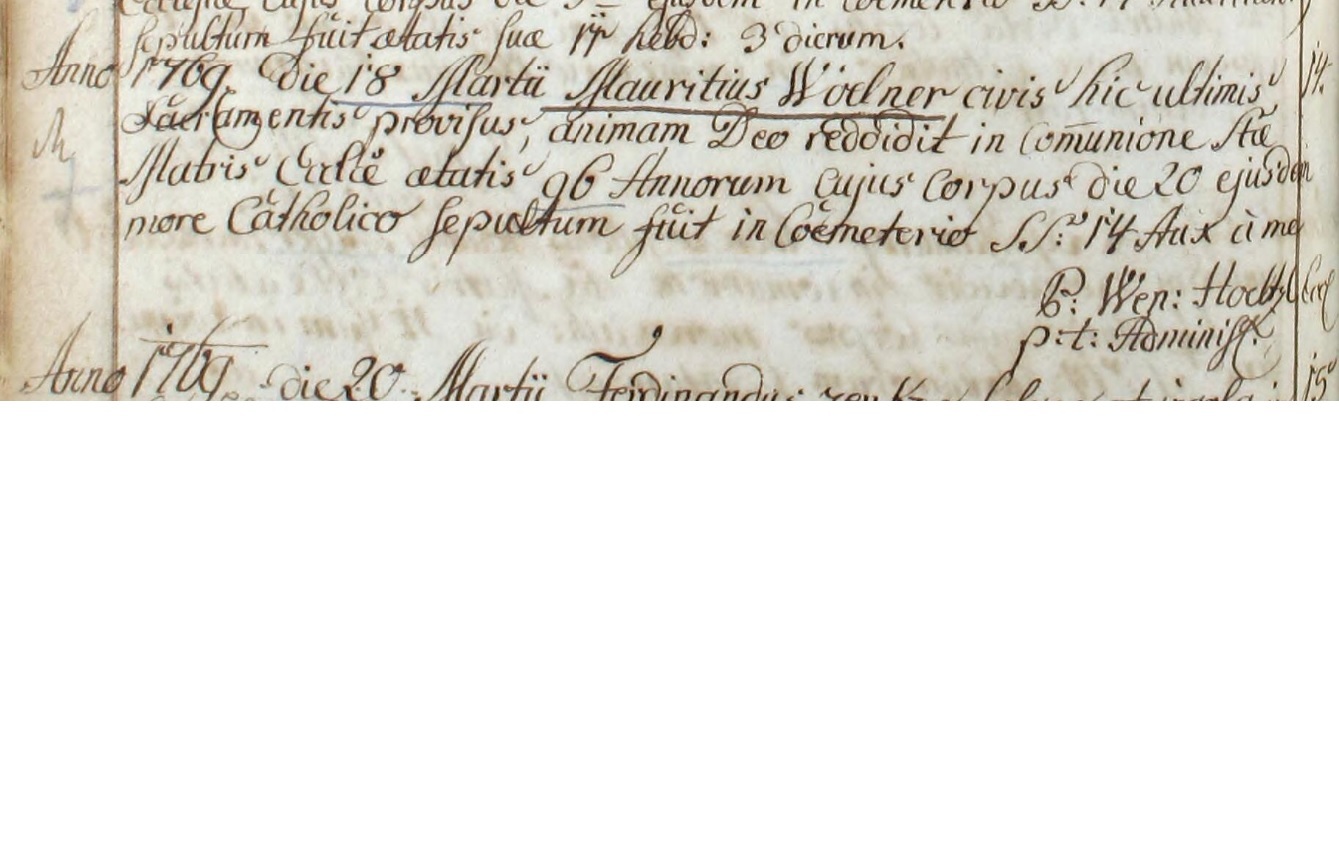 Ecclesiæ cujus corpus die ejusdem in Coemeterio SS: 14
sepultum fuit ætatis suæ 17 hebd: 3 dierum.
Anno 1769 die 18 Martii Mauritius Wöelner civis hic ultimis 14.
Sacramentis provisus, animam Deo reddidit in Com̄unione Stæ
Matris Ecclæ ætatis 96 Annorum cujus corpus die 20 ejusdem
more Catholico sepultum fuit in Coemeterio SS: 14 Aux à me
P: Wen:
p: t: Administ.
Anno 1769 die 20 Martii Ferdinandus 15